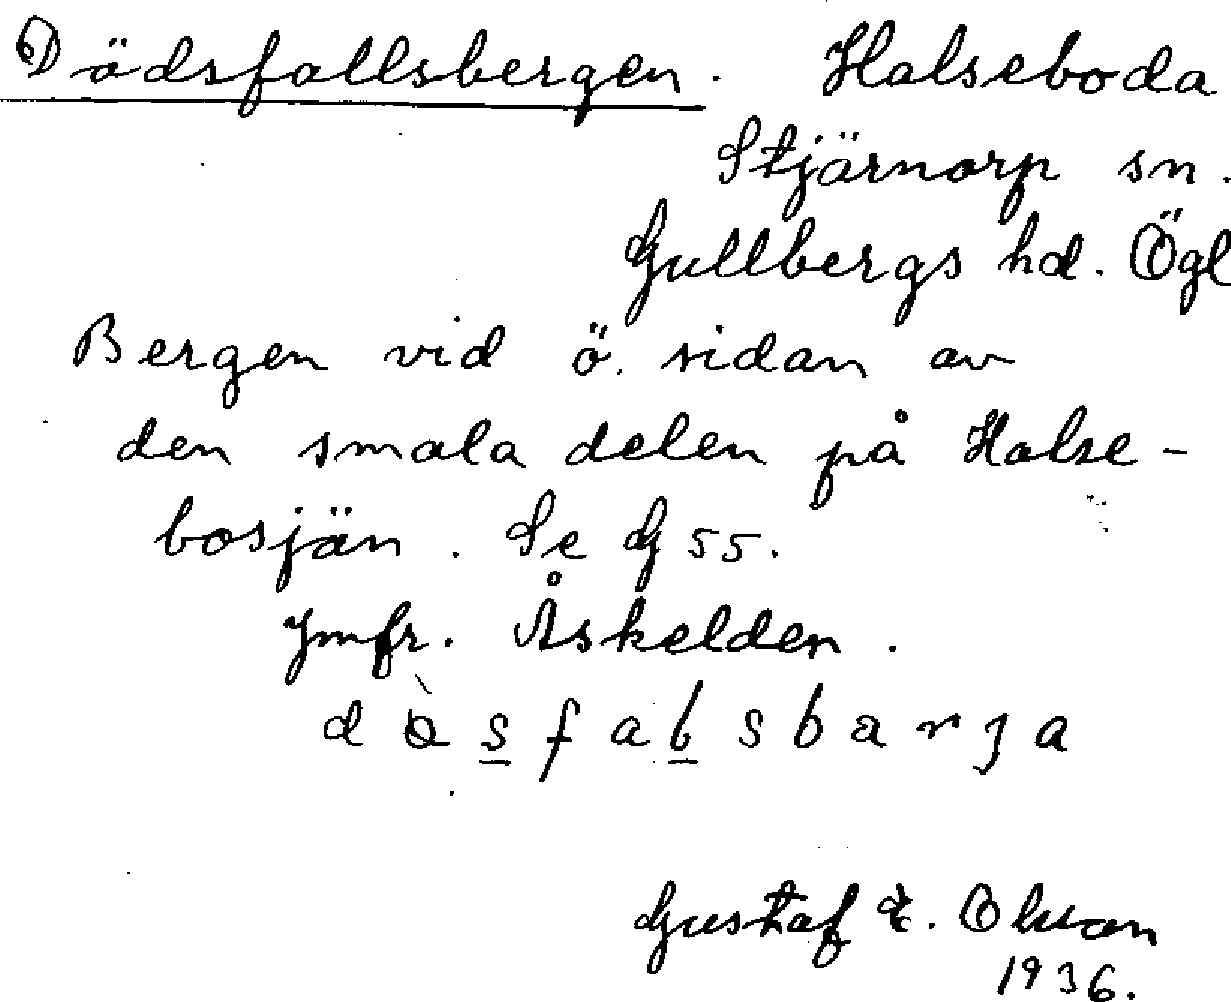 Dödsfallsbergen. Halseboda
Stjärnorp sn.
Gullbergs hd. Ögl
Bergen vid ö. sidan av
den smala delen på Halse-
bosjön. Se G 55.
Jmfr. Åskelden.
Gustaf E. Olsson
1936.